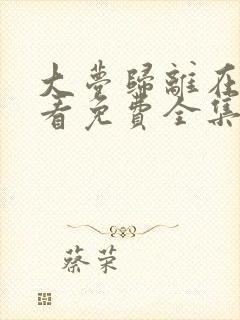 大夢歸離在
看免費全集
蔡荣